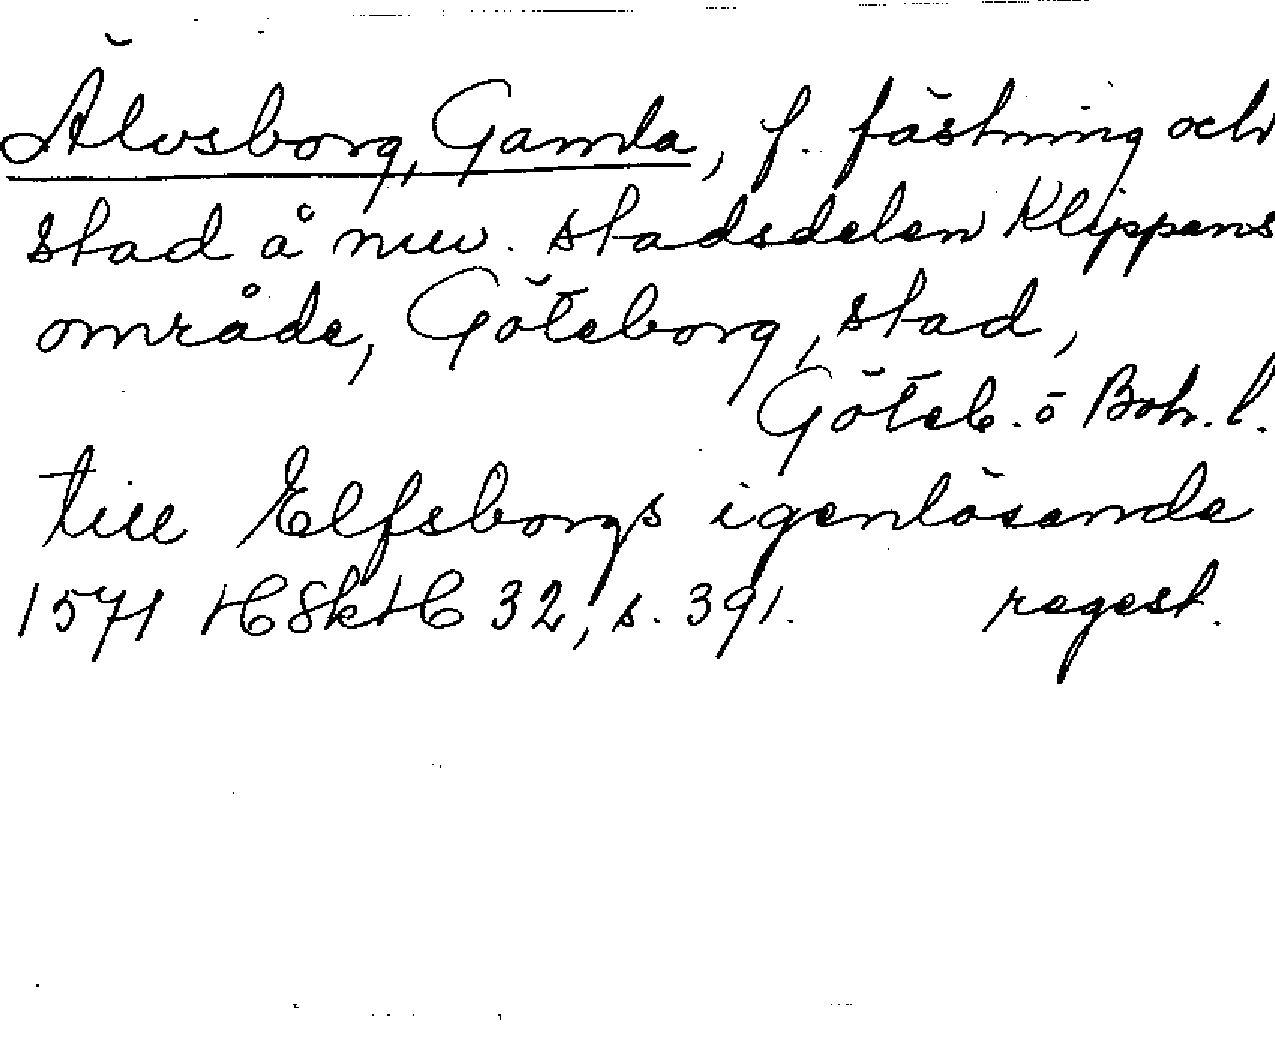 Älvsborg, Gamla, f. fästning och
stad å nuv. stadsdelen Klippans
område, Göteborg, stad,
Göteb. o Boh. l.
till Elfsborgs igenlösande
1571 HSkH 32, s. 391. regest.